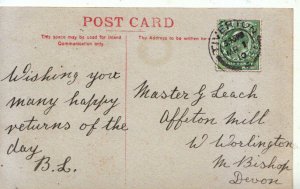 POST CARD
This space may be used for Inland Communication only.
The Address to be written here
Wishing you
many happy
returns of the
day
B.L.
Master G Leach
Affeton Mill
W Worlington
M Bishop
Devon
TIVERTON